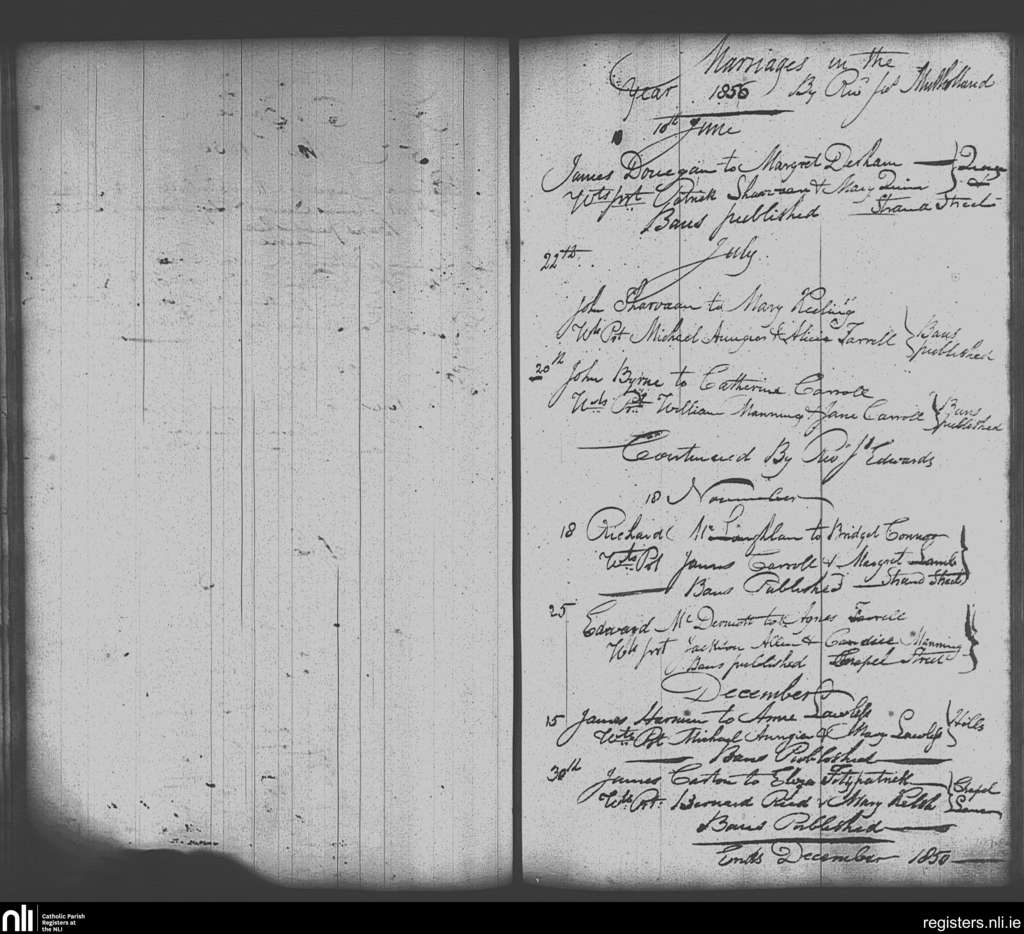 Marriages in the
Year 1850 By Revd Js Mulholland
10th June
James Donegan to Margret Derham
Wts prt Patrick Sharvaan & Mary Quinn
Strand Street
Bans published
July
22th
John Sharvaan to Mary Keeling
Wts Prt Michael Aungier & Alicia Farrell
Bans
published
20th
John Byrne to Catherine Carroll
Wts Prt William Manning & Jane Carroll
Bans
published
Continued By Revd Js Edwards
18 November
18 Richard McLoughlan to Bridget Connor
Wts Prt James Carroll & Margret Lamb
Bans Published Strand Street
25 Edward McDermott to Agnes Farrell
Wts prt Allen & Candice Manning
Bans published Chapel Street
December
15 James Harmin to Anne Lawless
Wts Prt Michael Aungier & Mary Lawless
Hills
Bans Published
30th James Carton to Eliza Fitzpatrick
Wts Prt Bernard Reid & Mary Kelsh
Chapel
Lane
Bans Published
Ends December 1850
nli
Catholic Parish
Registers at
the NLI
registers.nli.ie